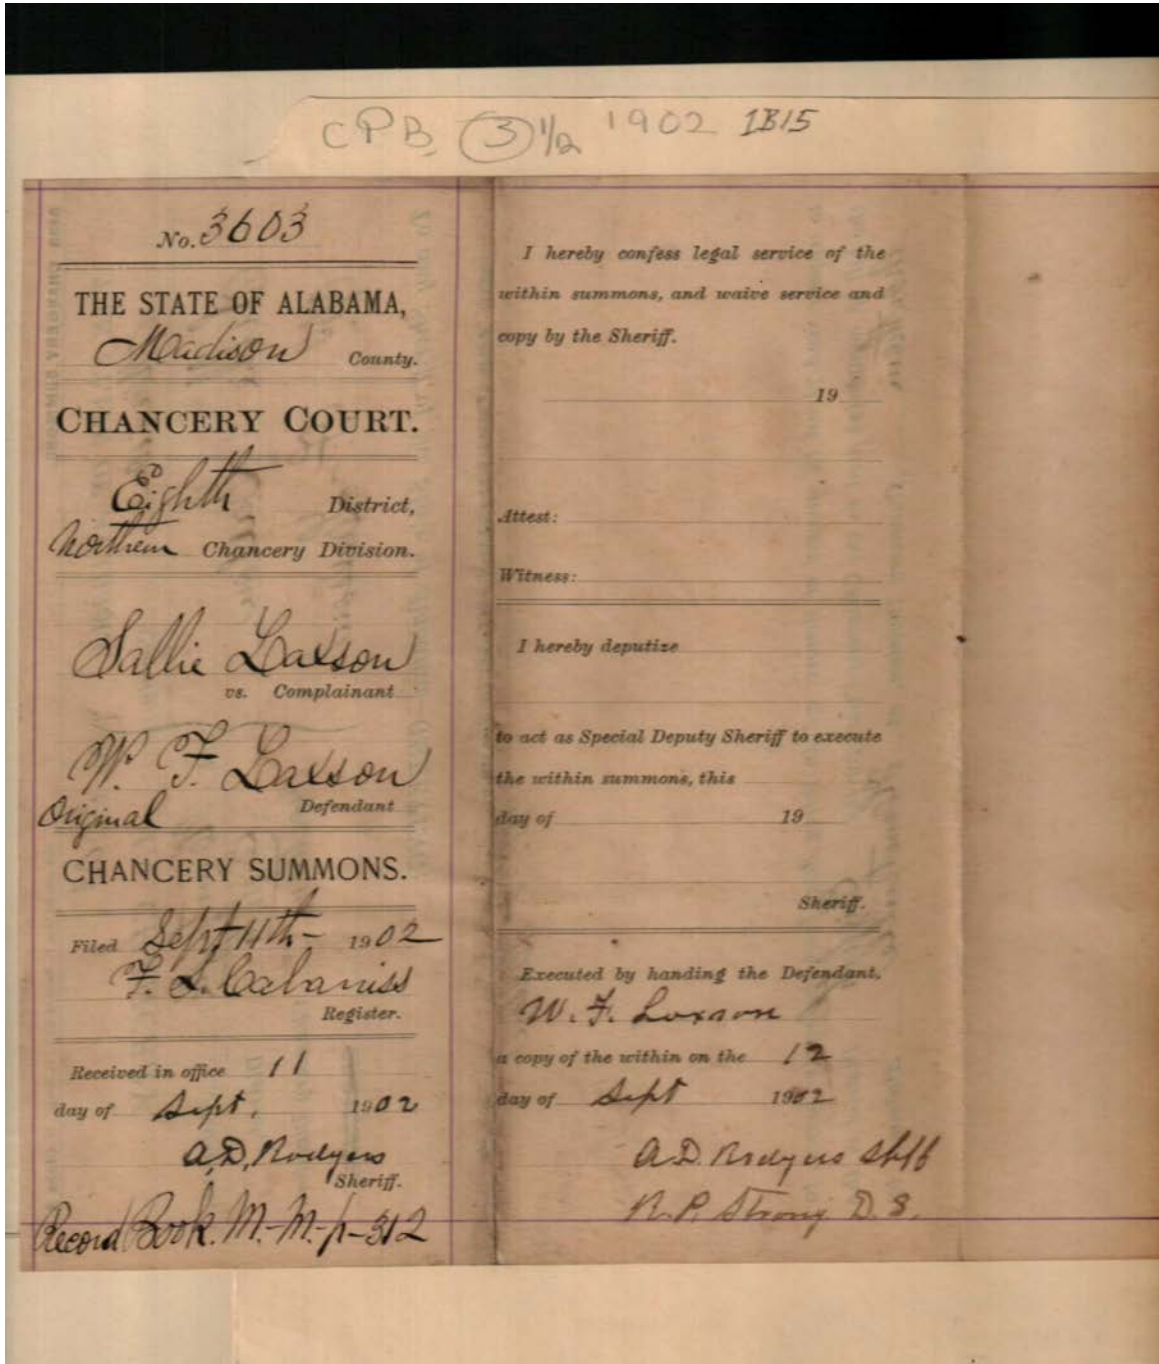 CPB 3 1/2 1902 1B15
No. 3603
THE STATE OF ALABAMA,
Madison County.
CHANCERY COURT.
Eighth District,
Northern Chancery Division.
Sallie Laxson
vs. Complainant
W. F. Laxson
Original Defendant
CHANCERY SUMMONS.
Filed Sept 11th - 1902
F. S. Cabaniss
Register.
Received in office 11
day of Sept. 1902
A. D. Rodgers
Sheriff.
Record Book. M.-M.-p-312
I hereby confess legal service of the
within summons, and waive service and
copy by the Sheriff.
19
Attest:
Witness:
I hereby deputize
to act as Special Deputy Sheriff to execute
the within summons, this
day of 19
Sheriff.
Executed by handing the Defendant,
W. F. Laxson
a copy of the within on the 12
day of Sept 1902
A. D. Rodgers Shff
R. P. Strong D. S.